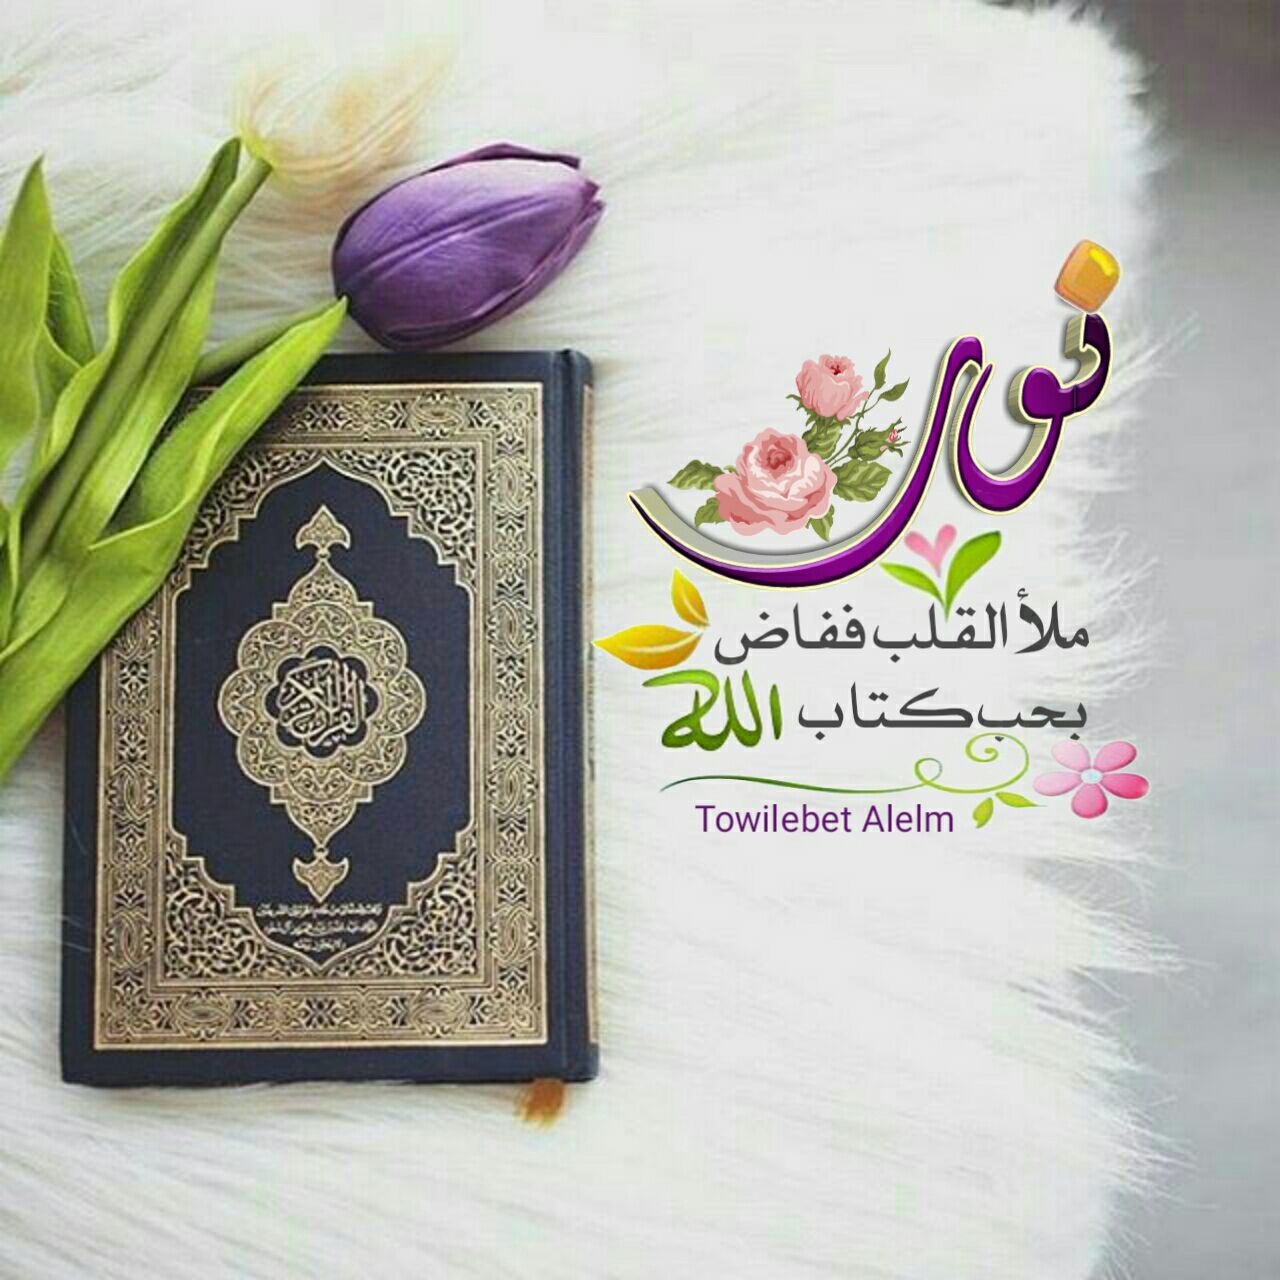 نور
ملأ القلب ففاض
بحب كتاب الله
Towilebet Alelm
القرآن الكريم